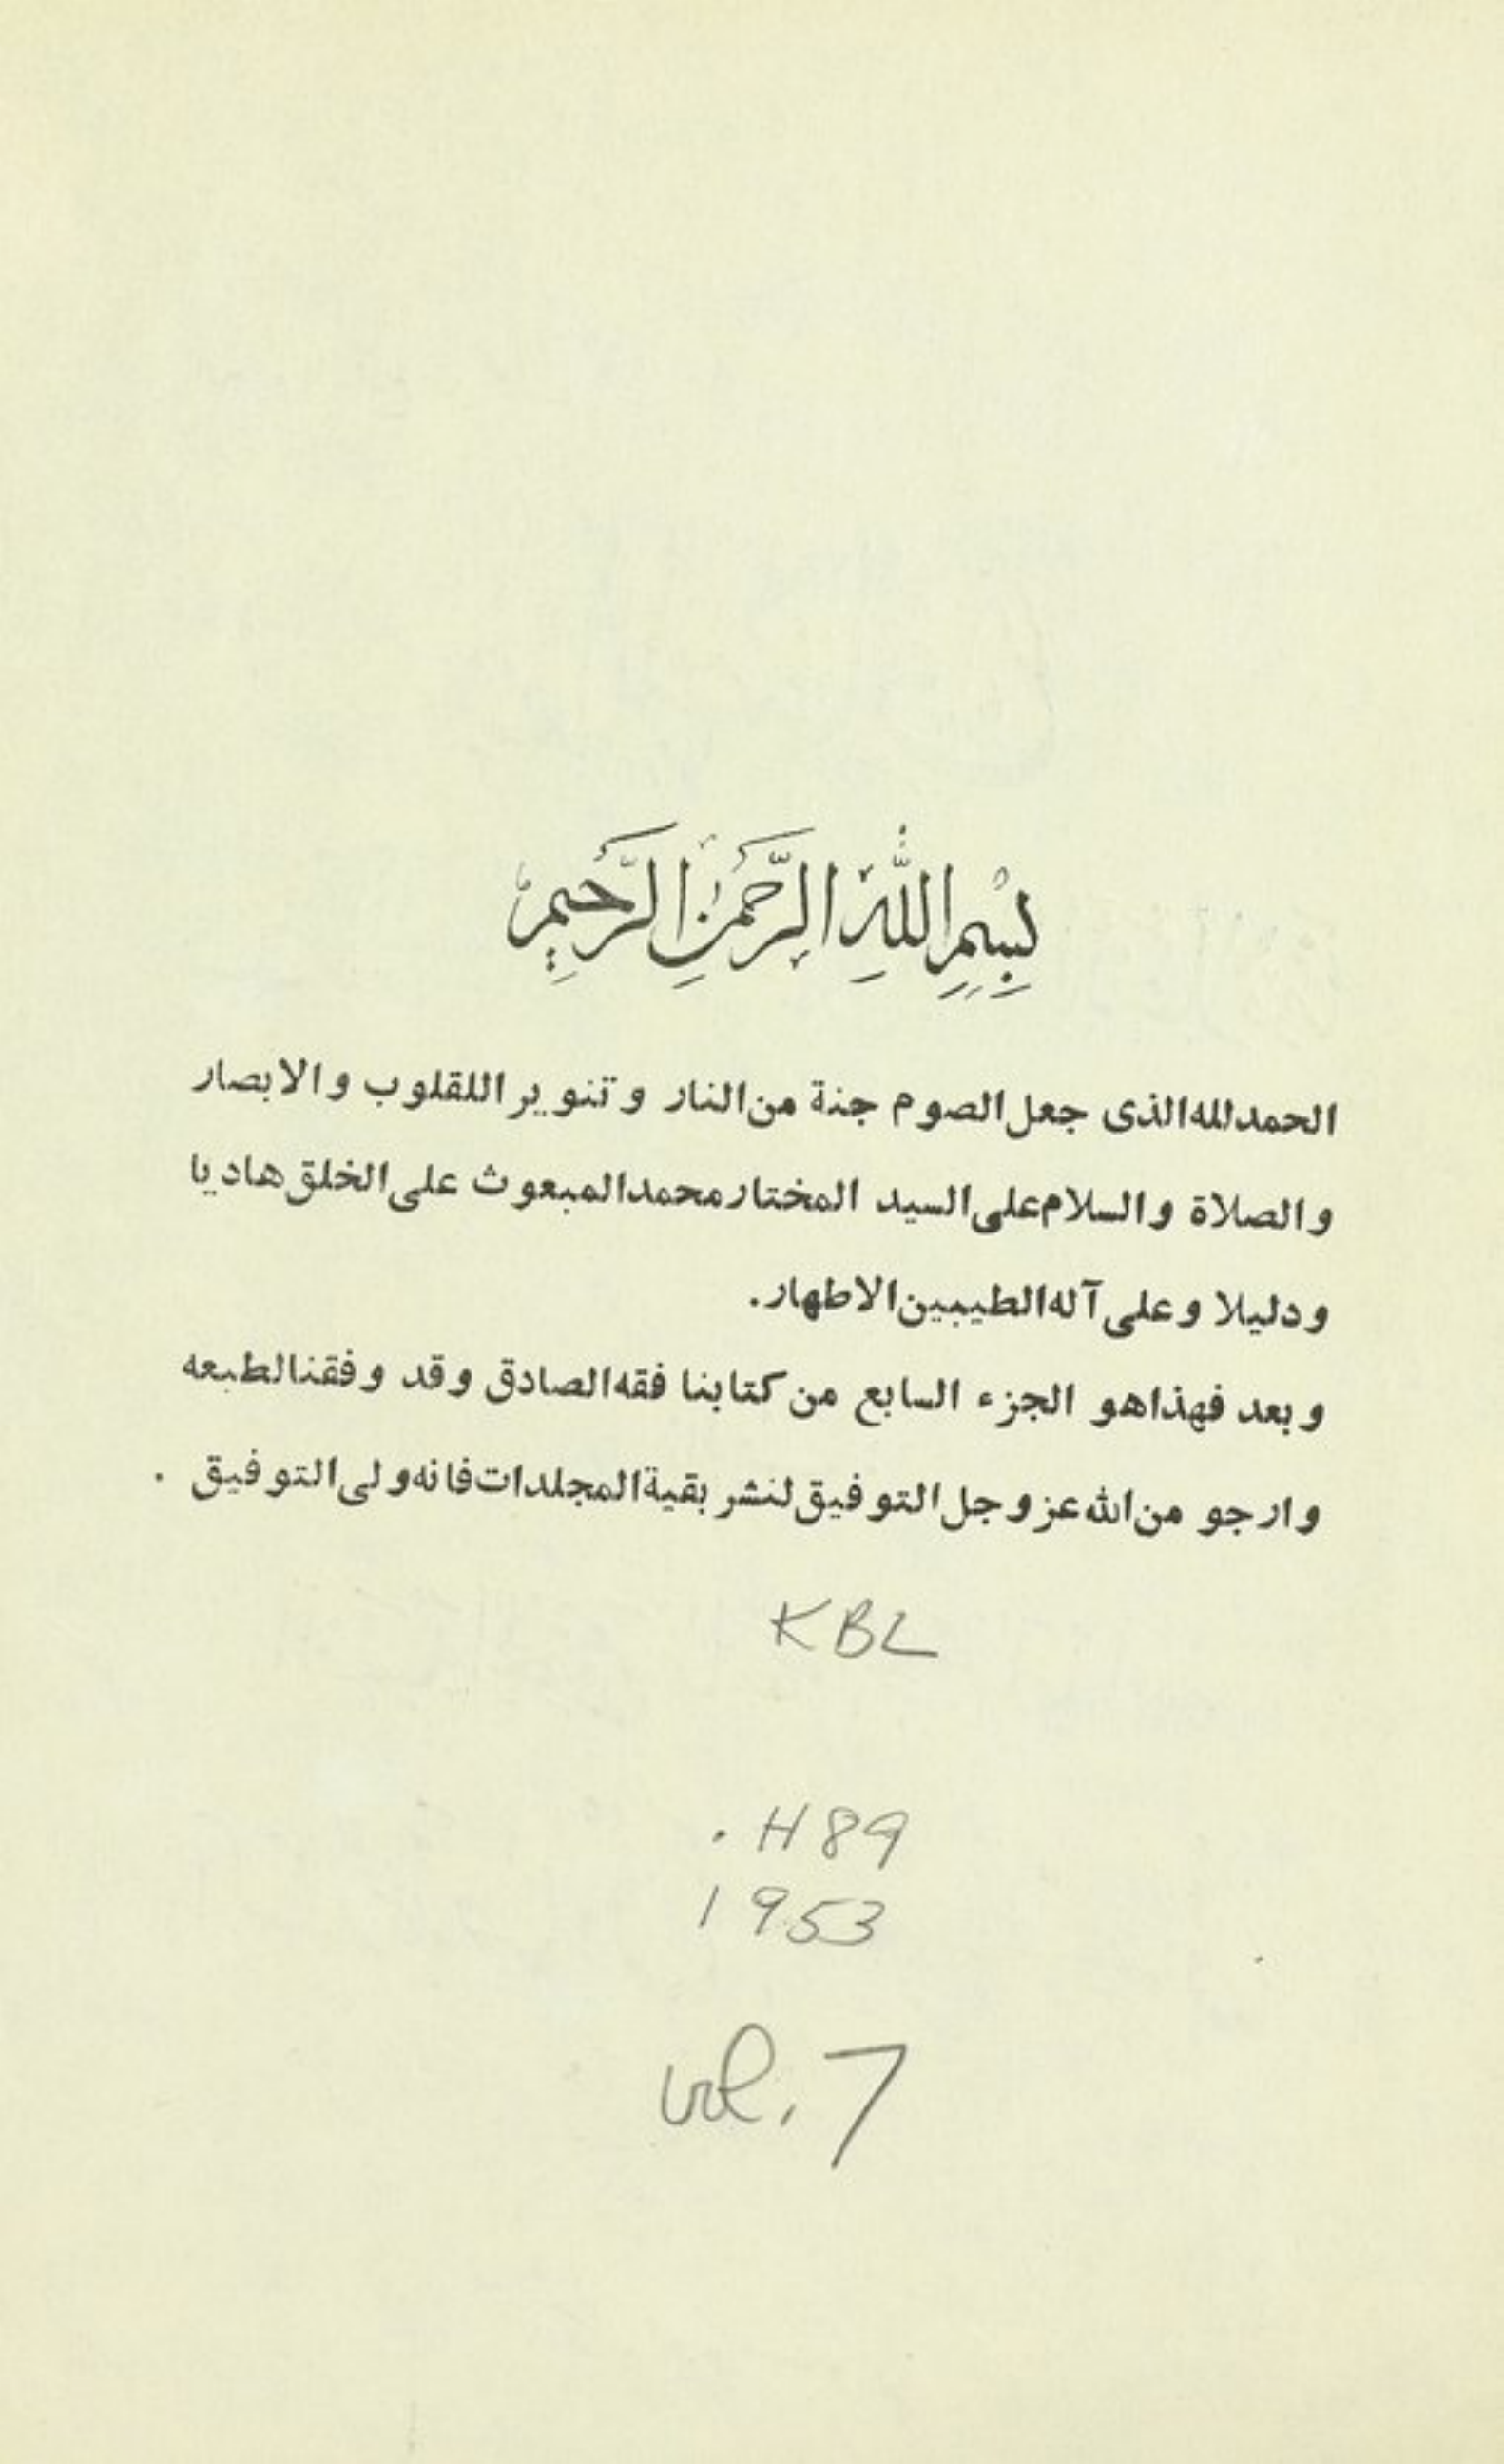 بِسْمِ اللّٰهِ الرَّحْمٰنِ الرَّحِيمِ
الحمدلله الذى جعل الصوم جنة من النار وتنويرا للقلوب والابصار
والصلاة والسلام على السيد المختار محمد المبعوث على الخلق هاديا
ودليلا وعلى آله الطيبين الاطهار.
وبعد فهذا هو الجزء السابع من كتابنا فقه الصادق وقد وفقنا لطبعه
وارجو من الله عز وجل التوفيق لنشر بقية المجلدات فانه ولى التوفيق .
KBL
.H89
1953
vol. 7